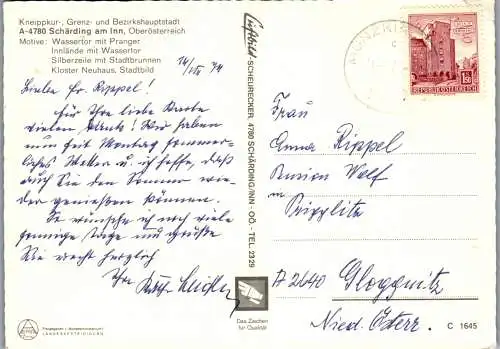 Kneippkur-, Grenz- und Bezirkshauptstadt
A-4780 Schärding am Inn, Oberösterreich
Motive: Wassertor mit Pranger
Innlände mit Wassertor
Silberzeile mit Stadtbrunnen
Kloster Neuhaus, Stadtbild
Liebe Fr. Rippel!
Für Ihre liebe Karte
vielen Dank! Wir haben
nun seit Montag sommer-
liches Wetter u. ich hoffe, daß
auch Sie den Sommer wie-
der genießen können.
So wünsche ich noch viele
sonnige Tage und grüße
Sie recht herzlich
Ihre
Luftbild-SCHEURECKER, 4780 SCHÄRDING/INN - OÖ. - TEL. 2329
REPUBLIK ÖSTERREICH
1.50
Frau
Anna Rippel
Pension Wolf
in
A 2640 Gloggnitz
Nied. Österr.
Das Zeichen
für Qualität
LANDESVERTEIDIGEN
C 1645